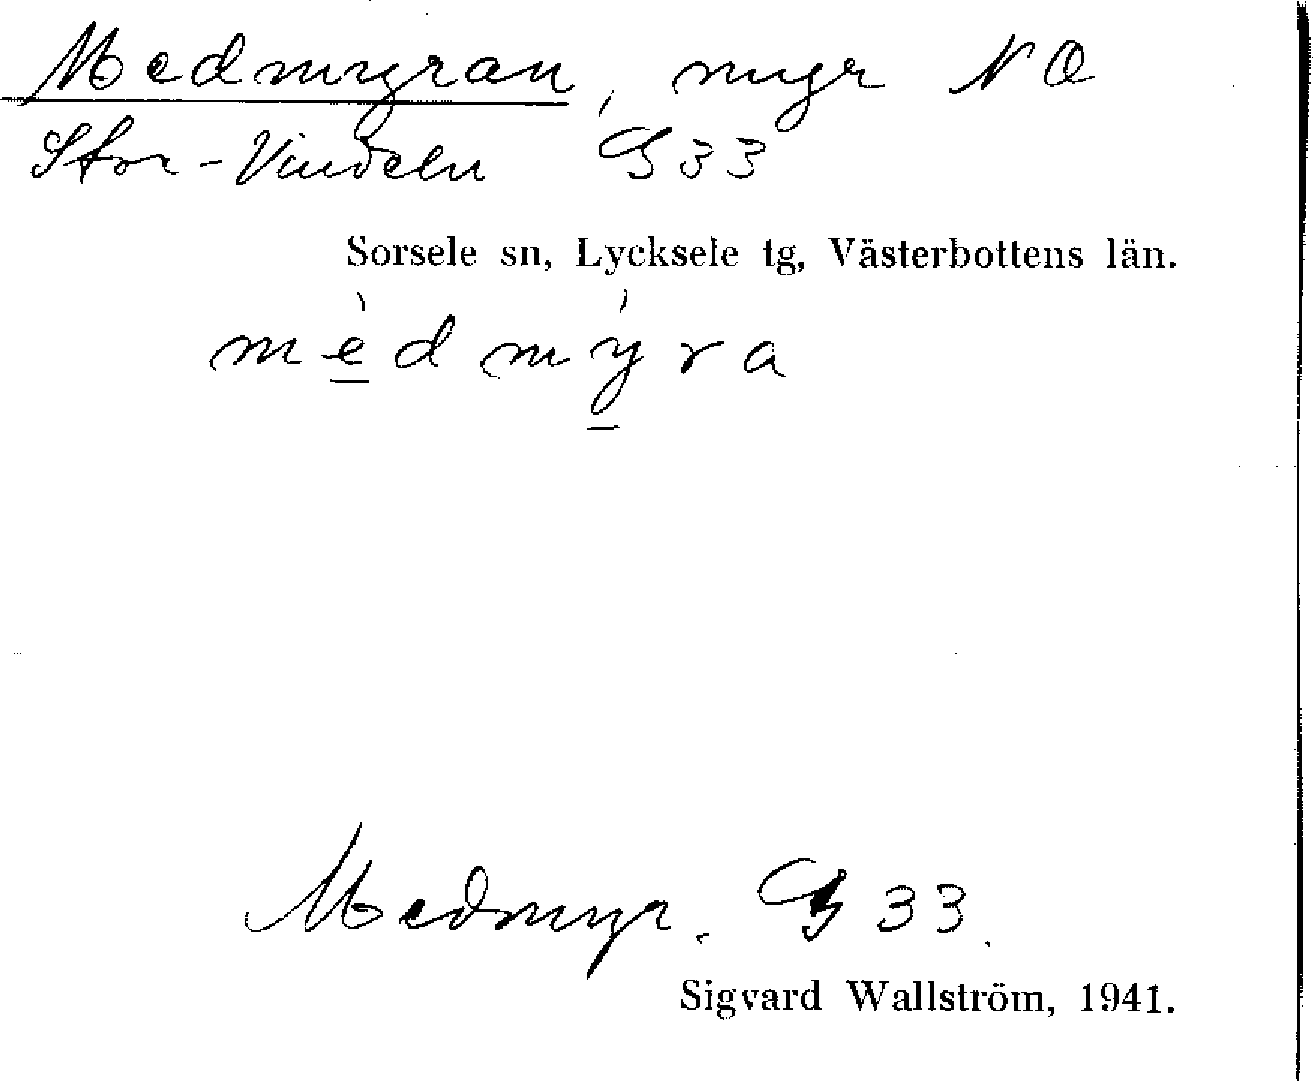 Medmyran, myr NO
Stor-Vindeln G 33
Sorsele sn, Lycksele tg, Västerbottens län.
mèdmy̆̀ra
Medmyr. G 33.
Sigvard Wallström, 1941.